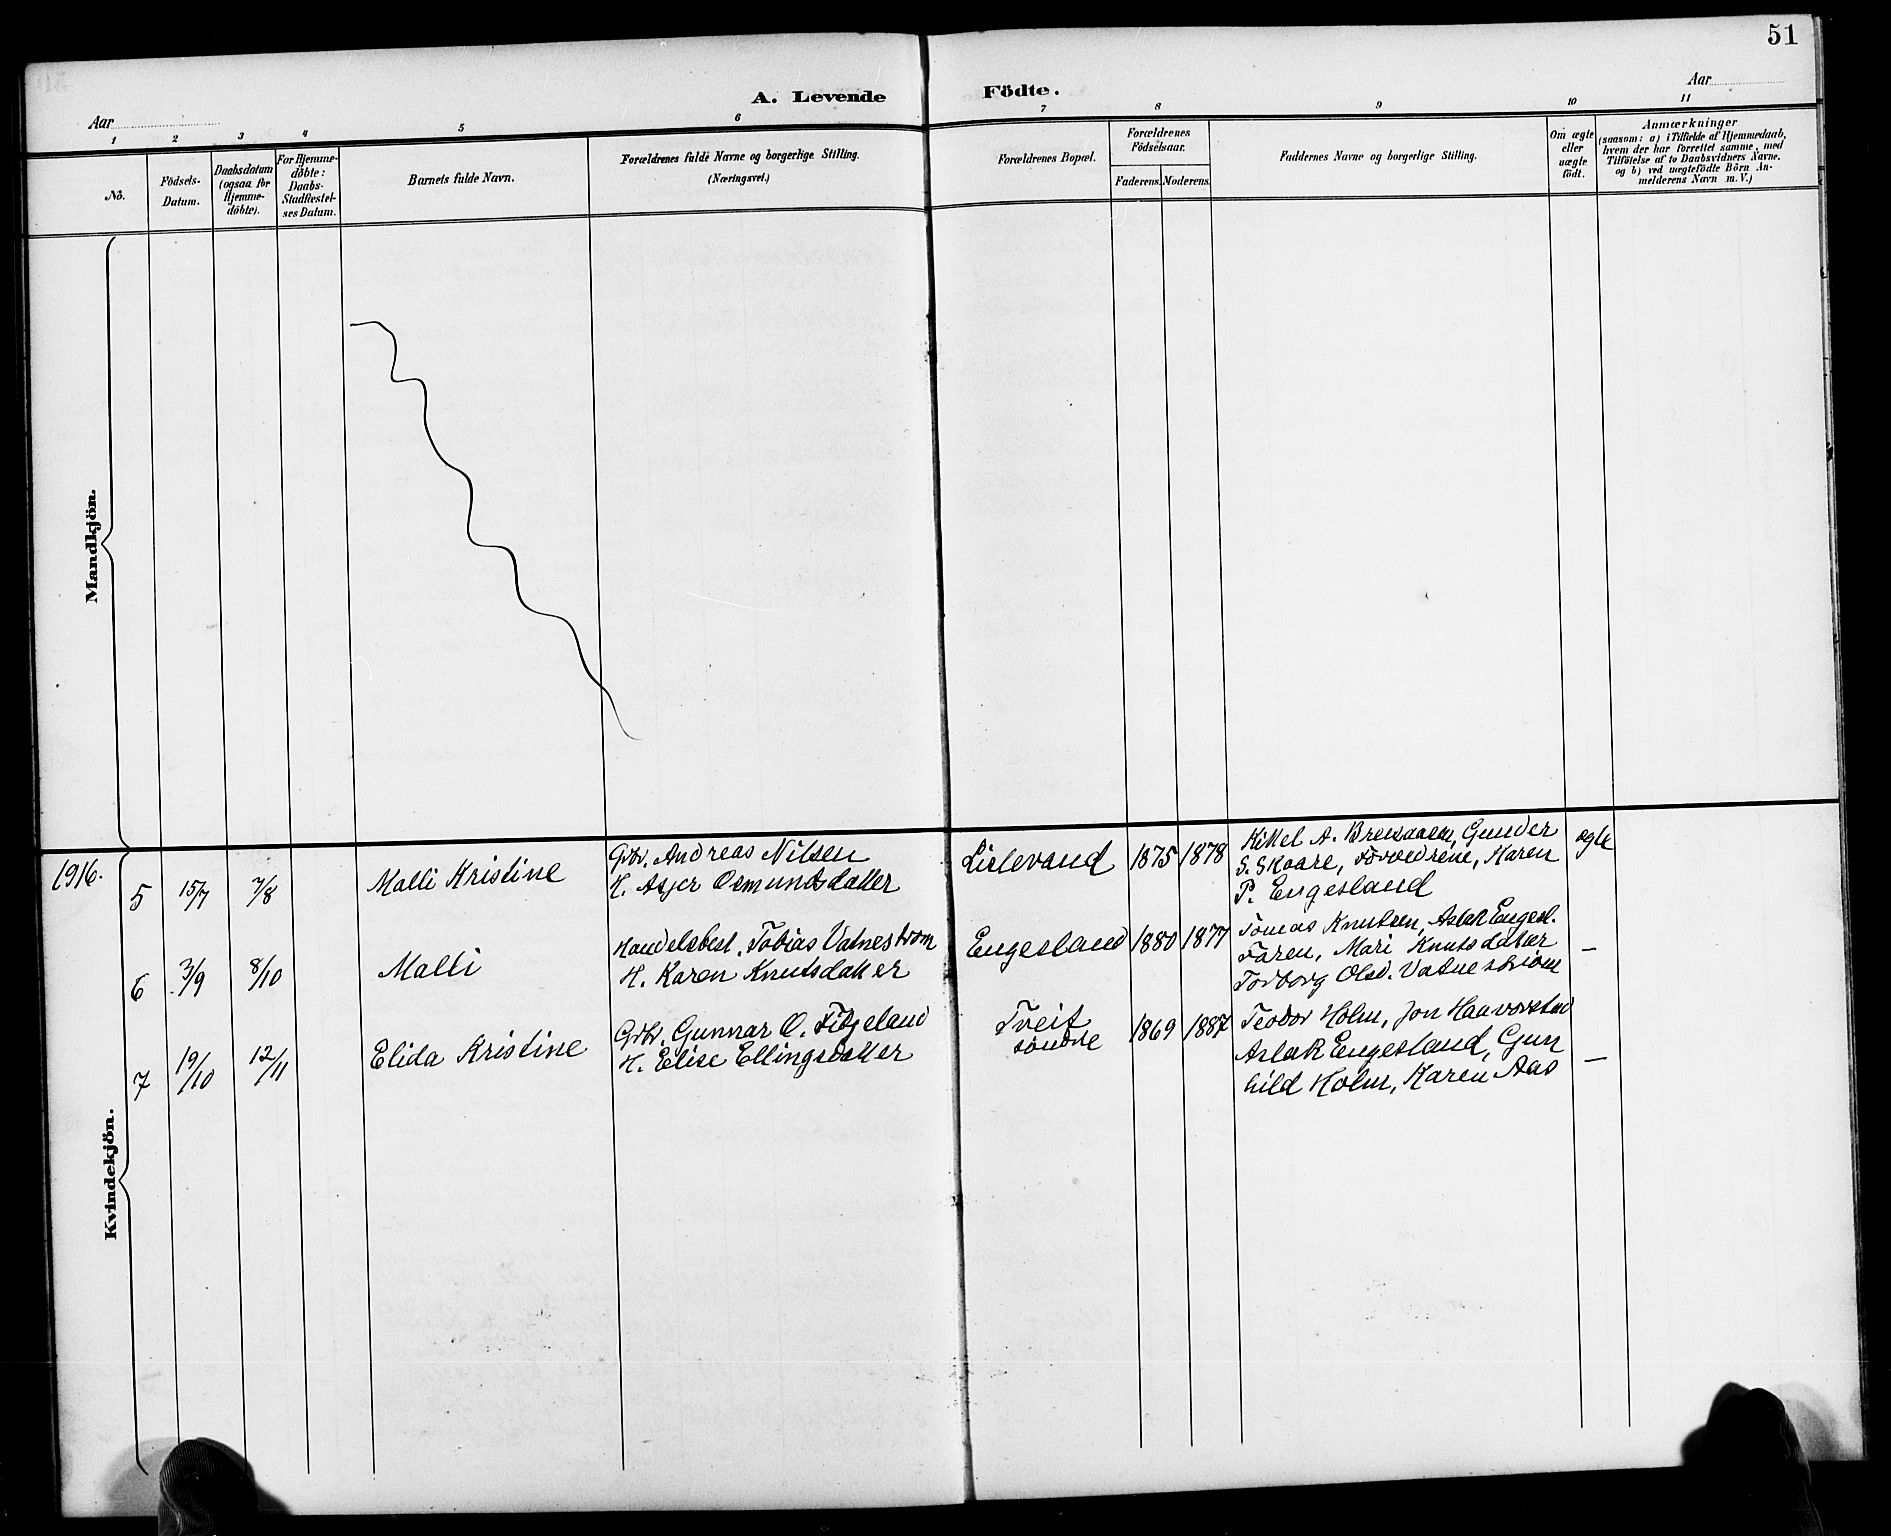 51
Aar
A. Levende Födte.
Aar
1 2 3 4 5 6 7 8 9 10 11
No.
Födsels-
Datum.
Daabsdatum
(ogsaa for
Hjemme-
döbte).
For Hjemme-
döbte:
Daabs-
Stadfæstel-
ses Datum.
Barnets fulde Navn.
Forældrenes fulde Navne og borgerlige Stilling.
(Næringsvei.)
Forældrenes Bopæl.
Forældrenes
Födselsaar.
Faderens. Moderens.
Faddernes Navne og borgerlige Stilling.
Om ægte
eller
uægte
födt.
Anmærkninger
(saasom: a) i Tilfælde af Hjemmedaab,
hvem der har forrettet samme, med
Tilföielse af to Daabsvidners Navne.
og b) ved uægtefödte Börn An-
melderens Navn m. V.)
Mandkjön.
Kvindekjön.
1916.
5 15/7 7/8 Malli Kristine
Grbr. Andreas Nilsen
H. Asjer Osmundsdatter
Lislevand 1875 1878
Kittel A. Breisaasen, Gunder
S. Skaare, Forældrene, Karen
P. Engesland
ægte
6 3/9 8/10 Malli
Handelsbest. Tobias Vatnestrøm
H. Karen Knutsdatter
Engesland 1880 1877
Tomas Knutsen, Aslak Engesl.
Faren, Mari Knutsdatter
Torborg Olsd. Vatnestrøm
—
7 19/10 12/11 Elida Kristine
Grbr. Gunnar O. Fidjeland
H. Elise Ellingsdatter
Tveit
søndre
1869 1887
Teodor Holm, Jon Haavorstad
Aslak Engesland, Gun
hild Holm, Karen Aas
—